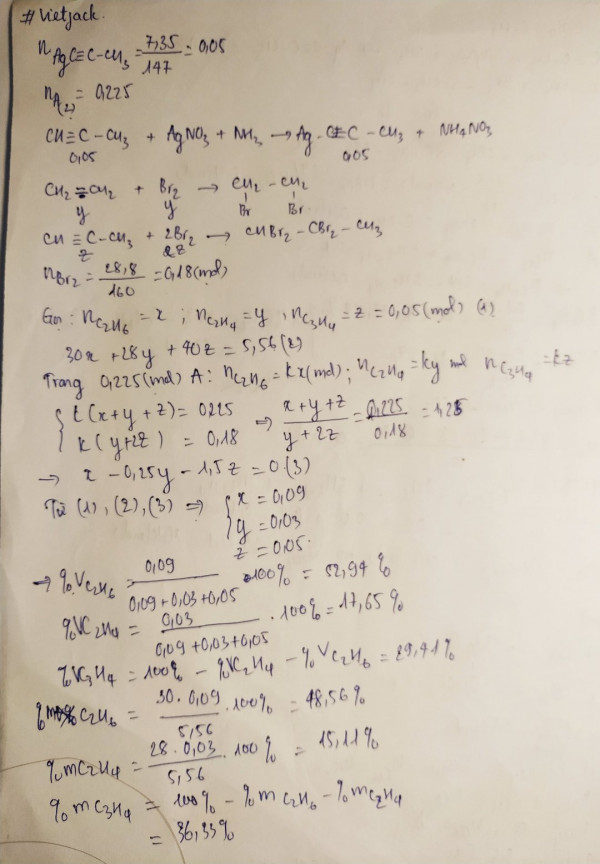 # Vietjack.
n AgC≡C-CH3 = 7,35/147 = 0,05
nA(2) = 0,225
CH≡C-CH3 + AgNO3 + NH3 → Ag-C≡C-CH3 + NH4NO3
0,05 0,05
CH2=CH2 + Br2 → CH2-CH2
y y Br Br
CH≡C-CH3 + 2Br2 → CHBr2-CBr2-CH3
z 2z
nBr2 = 28,8/160 = 0,18(mol)
Gọi: nC2H6 = x ; nC2H4 = y , nC3H4 = z = 0,05(mol) (1)
30x + 28y + 40z = 5,56 (2)
Trong 0,225(mol) A: nC2H6 = kx(mol); nC2H4 = ky mol nC3H4 = kz
{ k(x+y+z) = 0,225
{ k(y+2z) = 0,18 ⇒ x+y+z/y+2z = 0,225/0,18 = 1,25
→ x - 0,25y - 1,5z = 0 (3)
Từ (1), (2), (3) ⇒ { x = 0,09
y = 0,03
z = 0,05.
→ %VC2H6 = 0,09/0,09+0,03+0,05 .100% = 52,94%
%VC2H4 = 0,03/0,09+0,03+0,05 . 100% = 17,65%
%VC3H4 = 100% - %VC2H4 - %VC2H6 = 29,41%
%mC2H6 = 30.0,09/5,56 .100% = 48,56%
%mC2H4 = 28.0,03/5,56 .100% = 15,11%
%mC3H4 = 100% - %mC2H6 - %mC2H4
= 36,33%